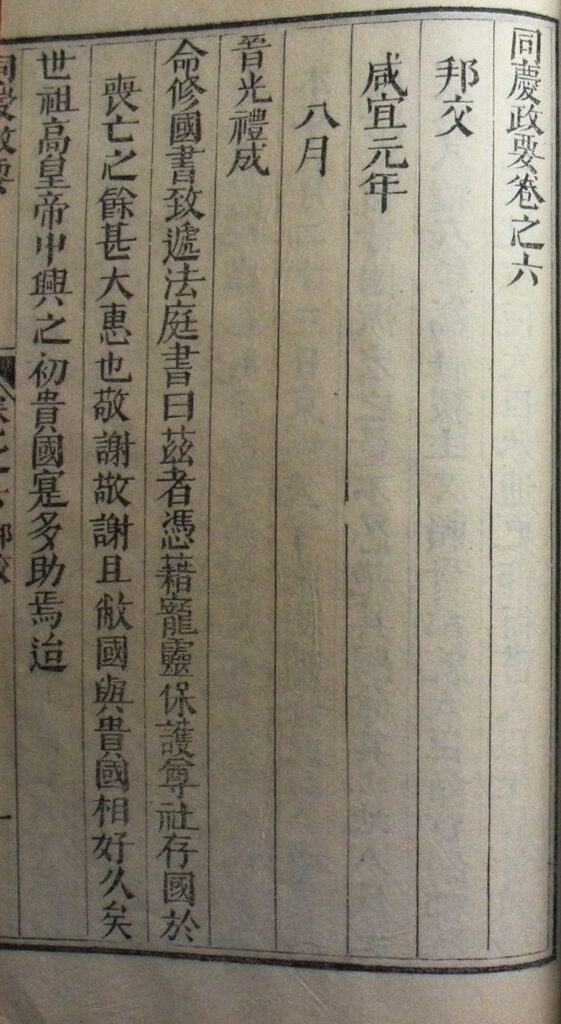 同慶政要卷之六
邦交
咸宜元年
八月
晉光禮成
命修國書致遞法庭書曰茲者憑藉寵靈保護尊社存國於
喪亡之餘甚大惠也敬謝敬謝且敝國與貴國相好久矣
世祖高皇帝中興之初貴國寔多助焉迨
同慶政要
卷之六 邦交
一